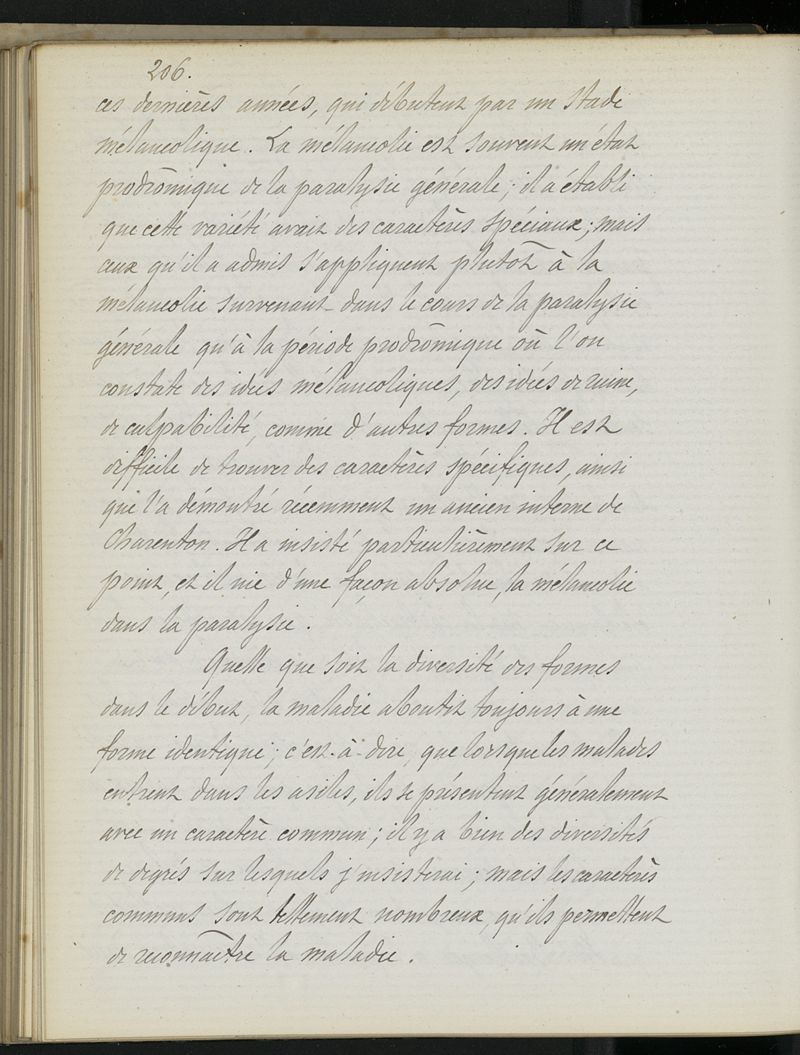 206.
ces dernières années, qui débutent par un stade
mélancolique. La mélancolie est souvent un état
prodrômique de la paralysie générale; il a établi
que cette variété avait des caractères spéciaux; mais
ceux qu'il a admis s'appliquent plutôt à la
mélancolie survenant dans le cours de la paralysie
générale qu'à la période prodrômique où l'on
constate des idées mélancoliques, des idées de ruine,
de culpabilité, comme d'autres formes. Il est
difficile de trouver des caractères spécifiques, ainsi
que l'a démontré récemment un ancien interne de
Charenton. Il a insisté particulièrement sur ce
point, et il nie d'une façon absolue, la mélancolie
dans la paralysie.
Quelle que soit la diversité des formes
dans le début, la maladie aboutit toujours à une
forme identique; c'est-à-dire, que lorsque les malades
entrent dans les asiles, ils se présentent généralement
avec un caractère commun; il y a bien des diversités
de degrés sur lesquels j'insisterai; mais les caractères
communs sont tellement nombreux, qu'ils permettent
de reconnaître la maladie.